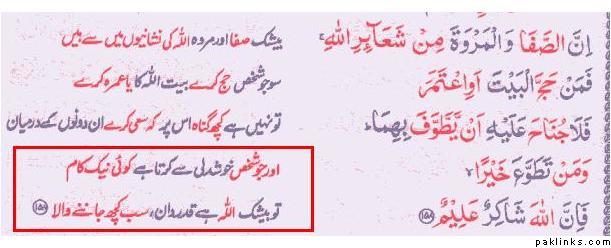 اِنَّ الصَّفَا وَالْمَرْوَةَ مِنْ شَعَآئِرِ اللّٰهِ ۚ
بیشک صفا اور مروہ اللہ کی نشانیوں میں سے ہیں
فَمَنْ حَجَّ الْبَيْتَ اَوِ اعْتَمَرَ
سو جو شخص حج کرے بیت اللہ کا یا عمرہ کرے
فَلَا جُنَاحَ عَلَيْهِ اَنْ يَّطَّوَّفَ بِهِمَا ؕ
تو نہیں ہے کچھ گناہ اس پر کہ سعی کرے ان دونوں کے درمیان
وَمَنْ تَطَوَّعَ خَيْرًا ۙ
اور جو شخص خوشدلی سے کرتا ہے کوئی نیک کام
فَاِنَّ اللّٰهَ شَاكِرٌ عَلِيْمٌ ﴿۱۵۸﴾
تو بیشک اللہ ہے قدردان، سب کچھ جاننے والا ﴿۱۵۸﴾
paklinks.com